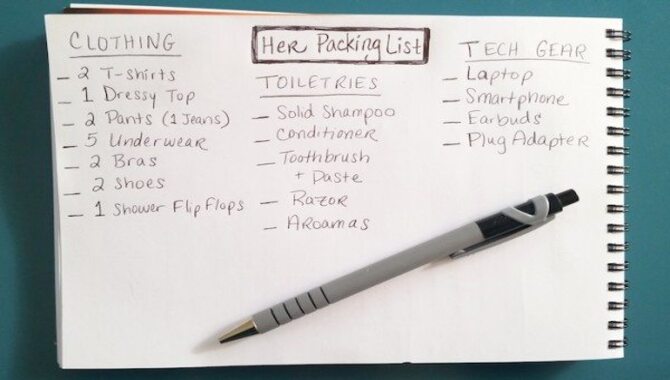 Her Packing List
CLOTHING
_ 2 T-shirts
_ 1 Dressy Top
_ 2 Pants (1 Jeans)
_ 5 Underwear
_ 2 Bras
_ 2 Shoes
_ 1 Shower Flip Flops
TOILETRIES
_ Solid Shampoo
_ Conditioner
_ Toothbrush
+ Paste
_ Razor
_ Aroamas
TECH GEAR
_ Laptop
_ Smartphone
_ Earbuds
_ Plug Adapter